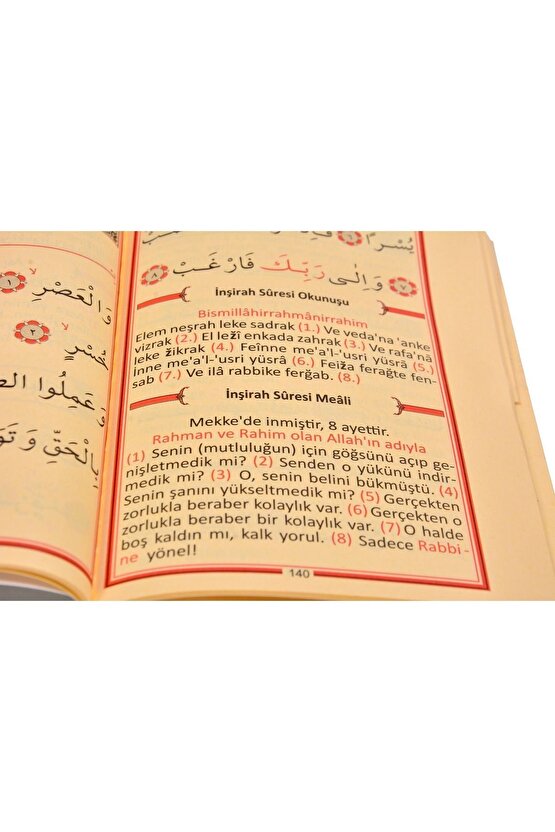 وَالْعَصْرِ ﴿١﴾
خُسْرٍ ﴿٢﴾
وَعَمِلُوا
بِالْحَقِّ
يُسْرًا ﴿٦﴾
﴿٧﴾ وَاِلٰى رَبِّكَ فَارْغَبْ ﴿٨﴾
İnşirah Sûresi Okunuşu
Bismillâhirrahmânirrahim
Elem neşrah leke sadrak (1.) Ve veda'na 'anke
vizrak (2.) El ležî enkada zahrak (3.) Ve rafa'nâ
leke žikrak (4.) Feînne me'a'l-'usri yüsrâ (5.)
İnne me'a'l-'usri yüsrâ (6.) Feiža ferağte fen-
sab (7.) Ve ilâ rabbike ferğab. (8.)
İnşirah Sûresi Meâli
Mekke'de inmiştir, 8 ayettir.
Rahman ve Rahim olan Allah'ın adıyla
(1) Senin (mutluluğun) için göğsünü açıp ge-
nişletmedik mi? (2) Senden o yükünü indir-
medik mi? (3) O, senin belini bükmüştü. (4)
Senin şanını yükseltmedik mi? (5) Gerçekten
zorlukla beraber kolaylık var. (6) Gerçekten o
zorlukla beraber bir kolaylık var. (7) O halde
boş kaldın mı, kalk yorul. (8) Sadece Rabbi-
ne yönel!
140